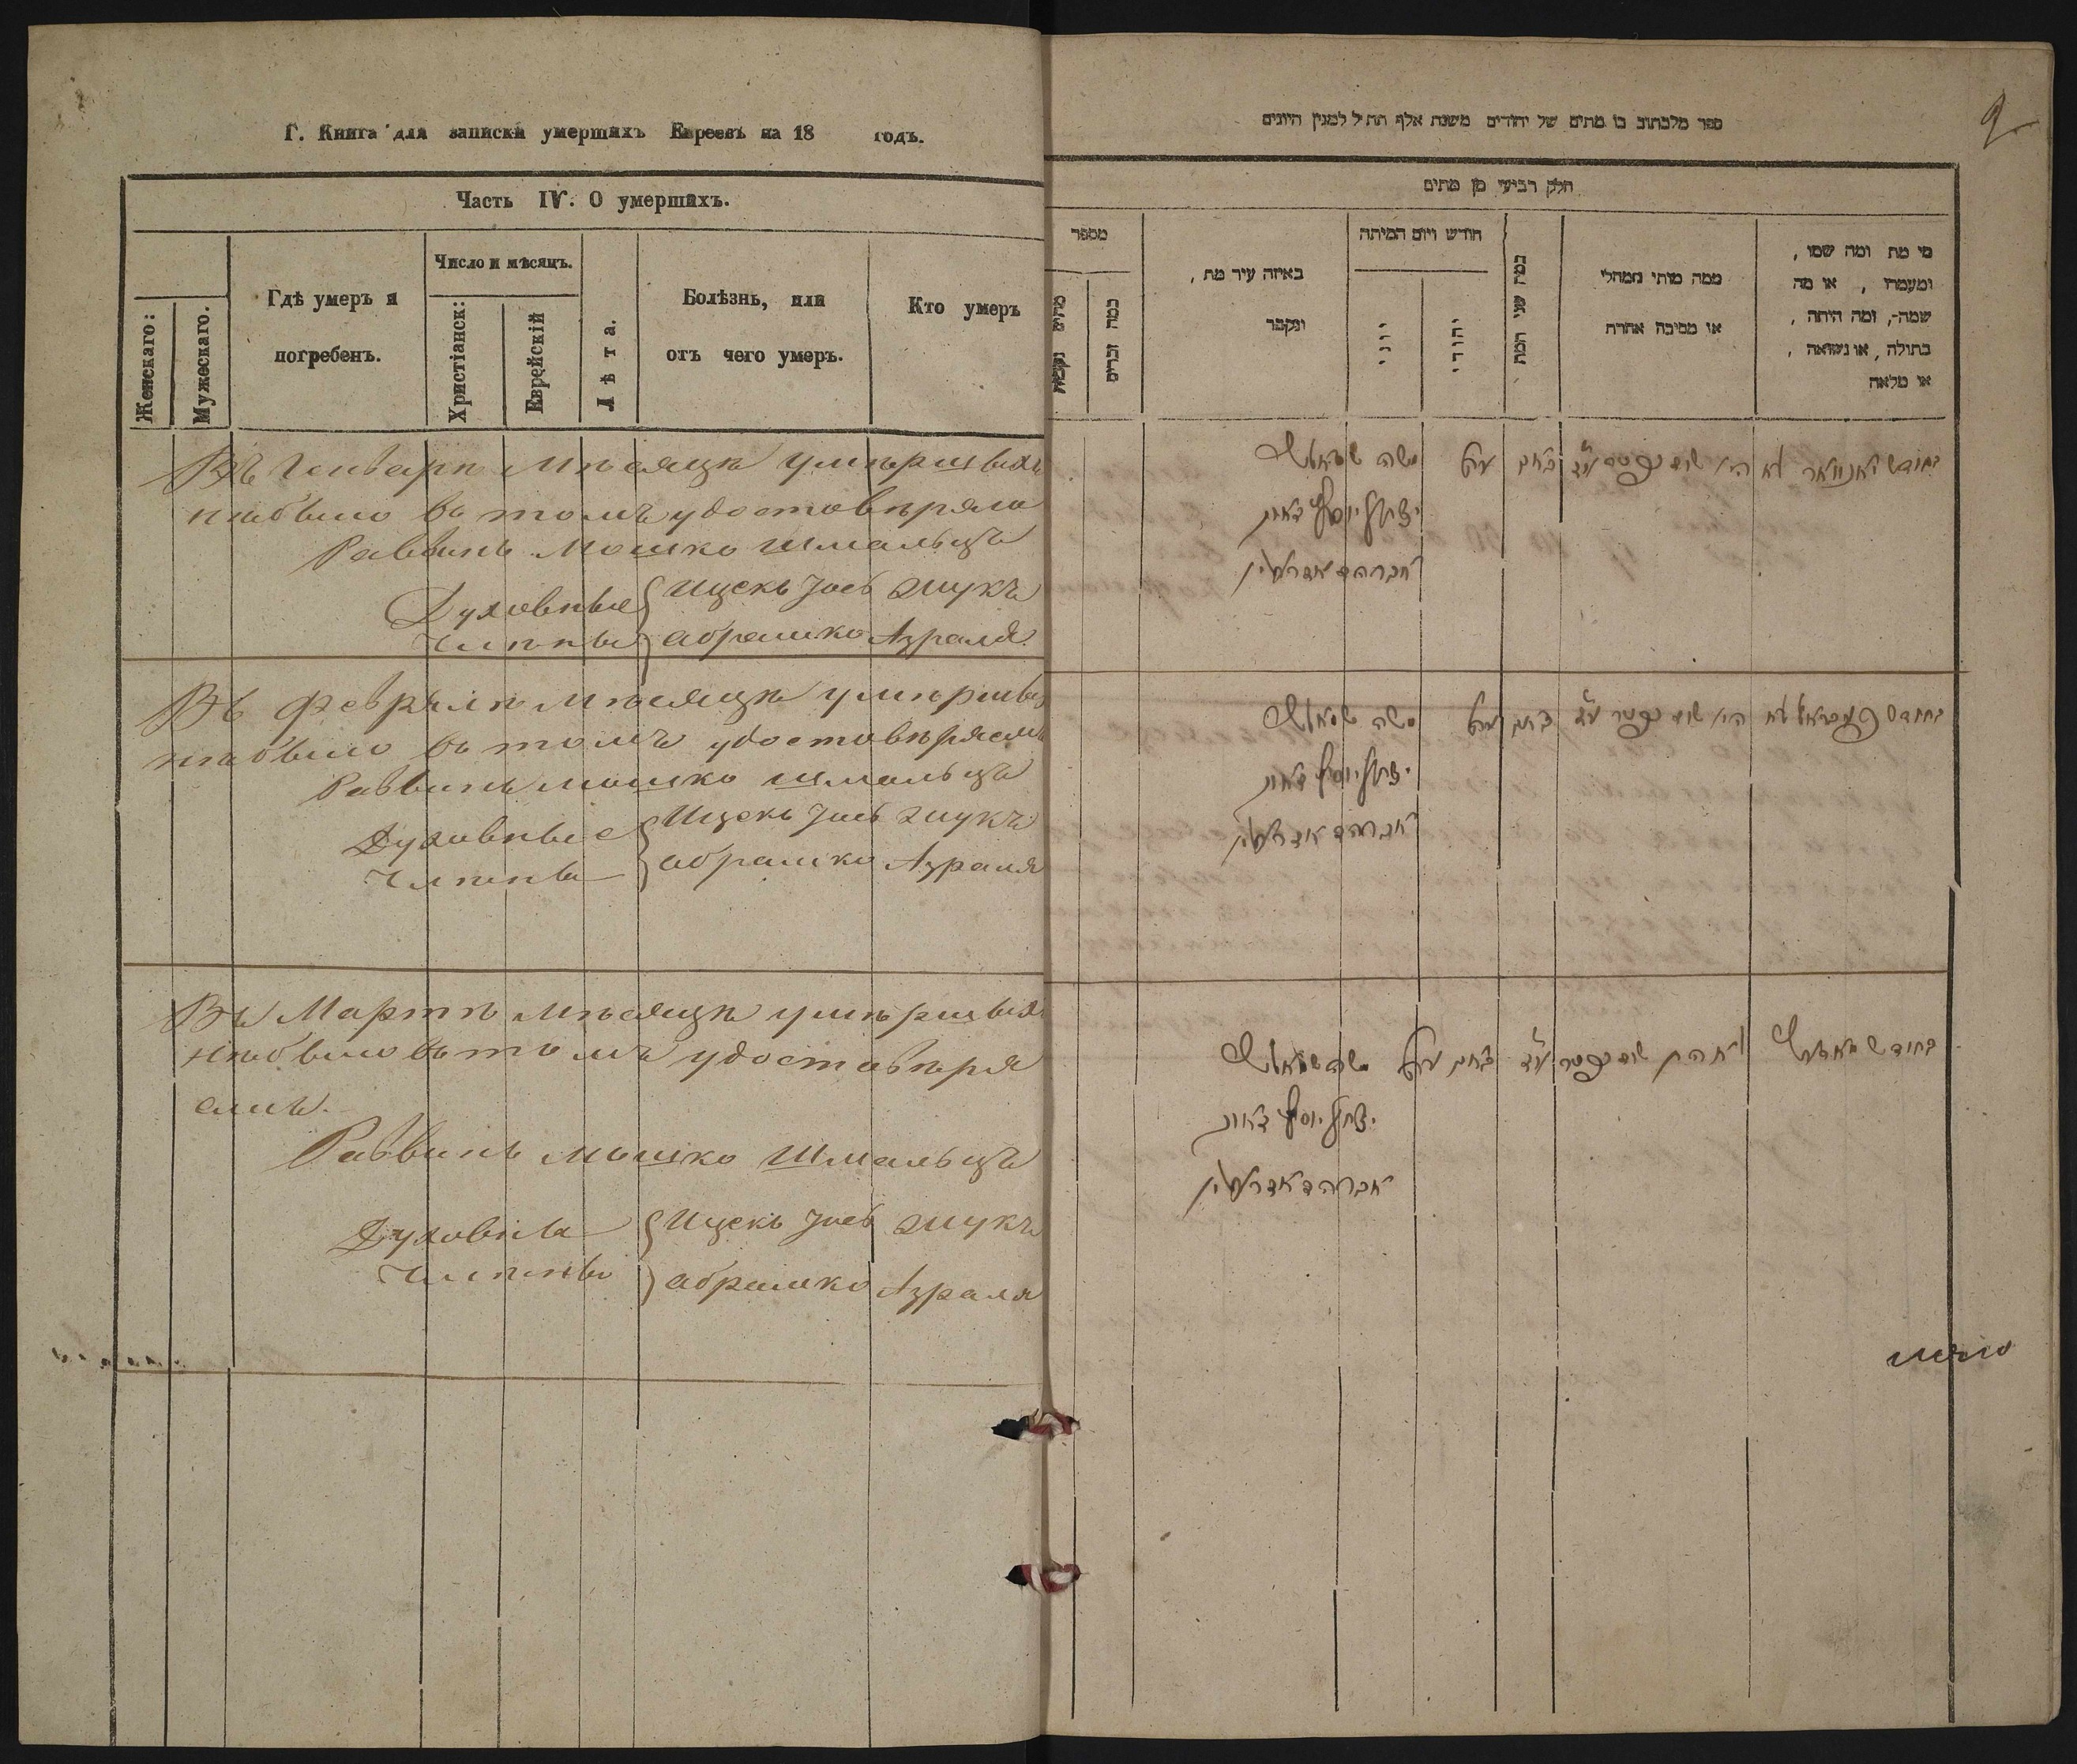 Г. Книга для записки умершихъ Евреевъ на 18 годъ.
Часть IV. О умершихъ.
Женскаго:
Мужескаго.
Гдѣ умеръ и
погребенъ.
Число и мѣсяцъ.
Христіанск:
Еврейскій
Лѣта.
Болѣзнь, или
отъ чего умеръ.
Кто умеръ
Въ Генварѣ мѣсяцѣ умершихъ
небыло въ томъ удостовѣряю
Раввинъ Мошко Шмальцъ
Духовные { Ицекъ Іосъ Жукъ
Члены } Абрамко Азраля
Въ Февралѣ мѣсяцѣ умершихъ
небыло въ томъ удостовѣряемъ
Раввинъ Мошко Шмальцъ
Духовные { Ицекъ Іосъ Жукъ
Члены } Абрамко Азраля
Въ Мартѣ мѣсяцѣ умершихъ
небыло въ томъ удостовѣря
емъ.
Раввинъ Мошко Шмальцъ
Духовны { Ицекъ Іосъ Жукъ
Члены } Абрамко Азраля
2
ספר מלכתוב בו מתים של יהודים משנת אלף תת״ל למנין היונים
חלק רביעי מן מתים
מי מת ומה שמו,
ומעמדו, או מה
שמה, ומה היתה,
בתולה, או נשואה,
או מלאה
ממה מותי ממחלי
או מסיבה אחרת
כמה שני המת
חודש ויום המיתה
יהודי
יוני
באיזה עיר מת,
ונקבר
מספר
כמה זכרים
מתים נקבות
בחודש יאנוואר לא היו שום נפטר
משה שמאלץ
יצחק יוסף
אברהם
בחודש פעבראל לא היו שום נפטר
משה שמאלץ
יצחק יוסף
אברהם
בחודש שום נפטר
משה שמאלץ
יצחק יוסף
אברהם